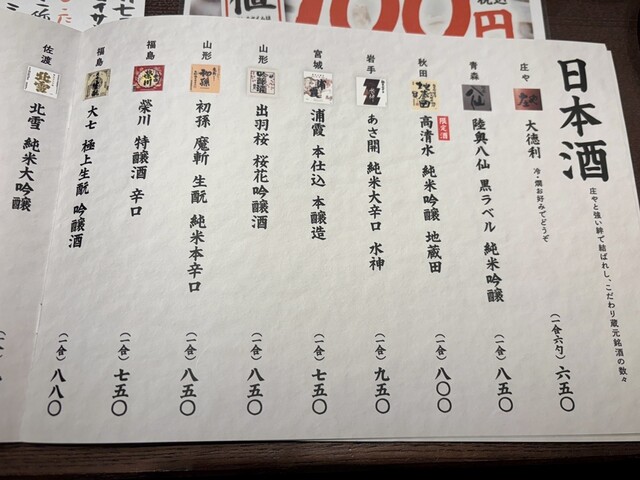 日本酒
庄やと強い絆で結ばれし、こだわり蔵元銘酒の数々
庄や
大徳利 冷・燗お好みでどうぞ
(一合六勺) 六五〇
青森
陸奥八仙 黒ラベル 純米吟醸
(一合) 八五〇
秋田
限定酒
高清水 純米吟醸 地蔵田
(一合) 八〇〇
岩手
あさ開 純米大辛口 水神
(一合) 九五〇
宮城
浦霞 本仕込 本醸造
(一合) 七五〇
山形
出羽桜 桜花吟醸酒
(一合) 八五〇
山形
初孫 魔斬 生酛 純米本辛口
(一合) 八五〇
福島
榮川 特醸酒 辛口
(一合) 七五〇
福島
大七 極上生酛 吟醸酒
(一合) 八八〇
佐渡
北雪
北雪 純米大吟醸
100円